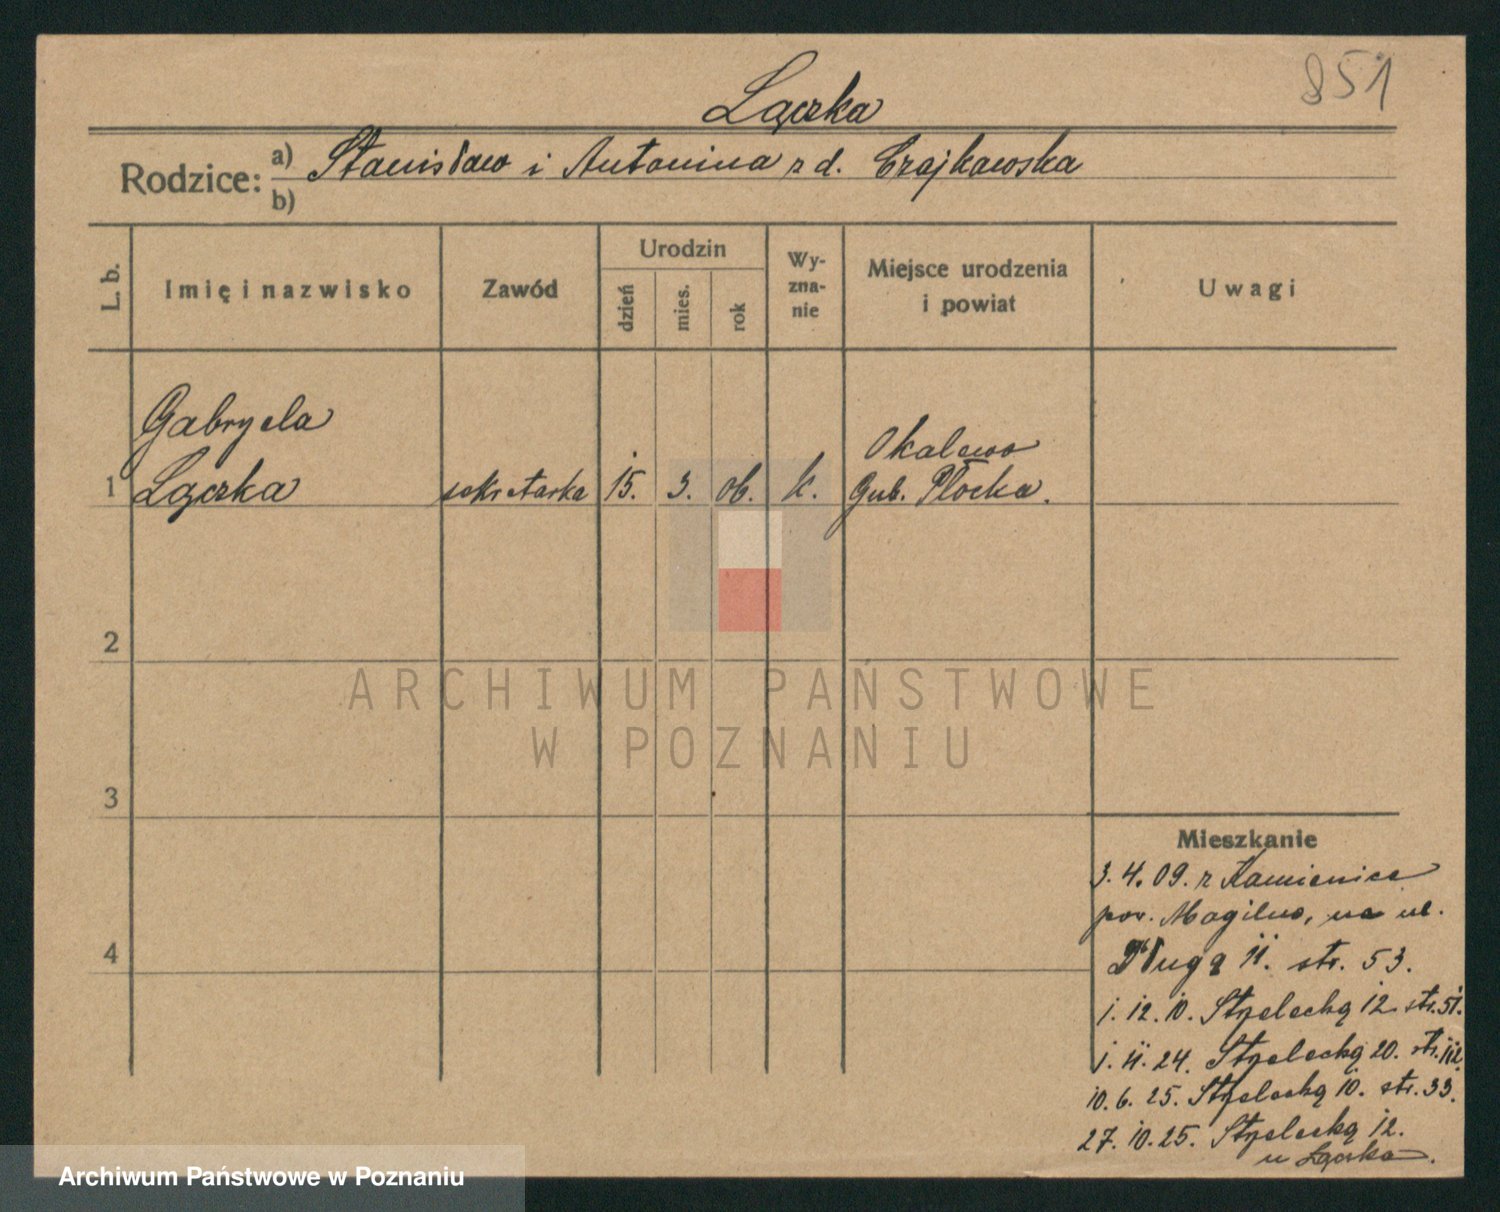 851
Łączka
Rodzice: a) Stanisław i Antonina z d. Czajkowska
b)
L. b.
Imię i nazwisko
Zawód
Urodzin
dzień
mies.
rok
Wy-
zna-
nie
Miejsce urodzenia
i powiat
Uwagi
Gabryela Okalewo
1 Łączka sekretarka 15. 3. 06. k. Gub. Płocka.
2
3
4
ARCHIWUM PAŃSTWOWE
W POZNANIU
Mieszkanie
3. 4. 09. z Kamieniec
pow. Mogilno, na ul.
Długą 11. str. 53.
1. 12. 10. Strzelecką 12 str. 51.
1. 11. 24. Strzelecką 20. str. 112
10. 6. 25. Strzelecką 10. str. 33.
27. 10. 25. Strzelecką 12.
u Łączka.
Archiwum Państwowe w Poznaniu